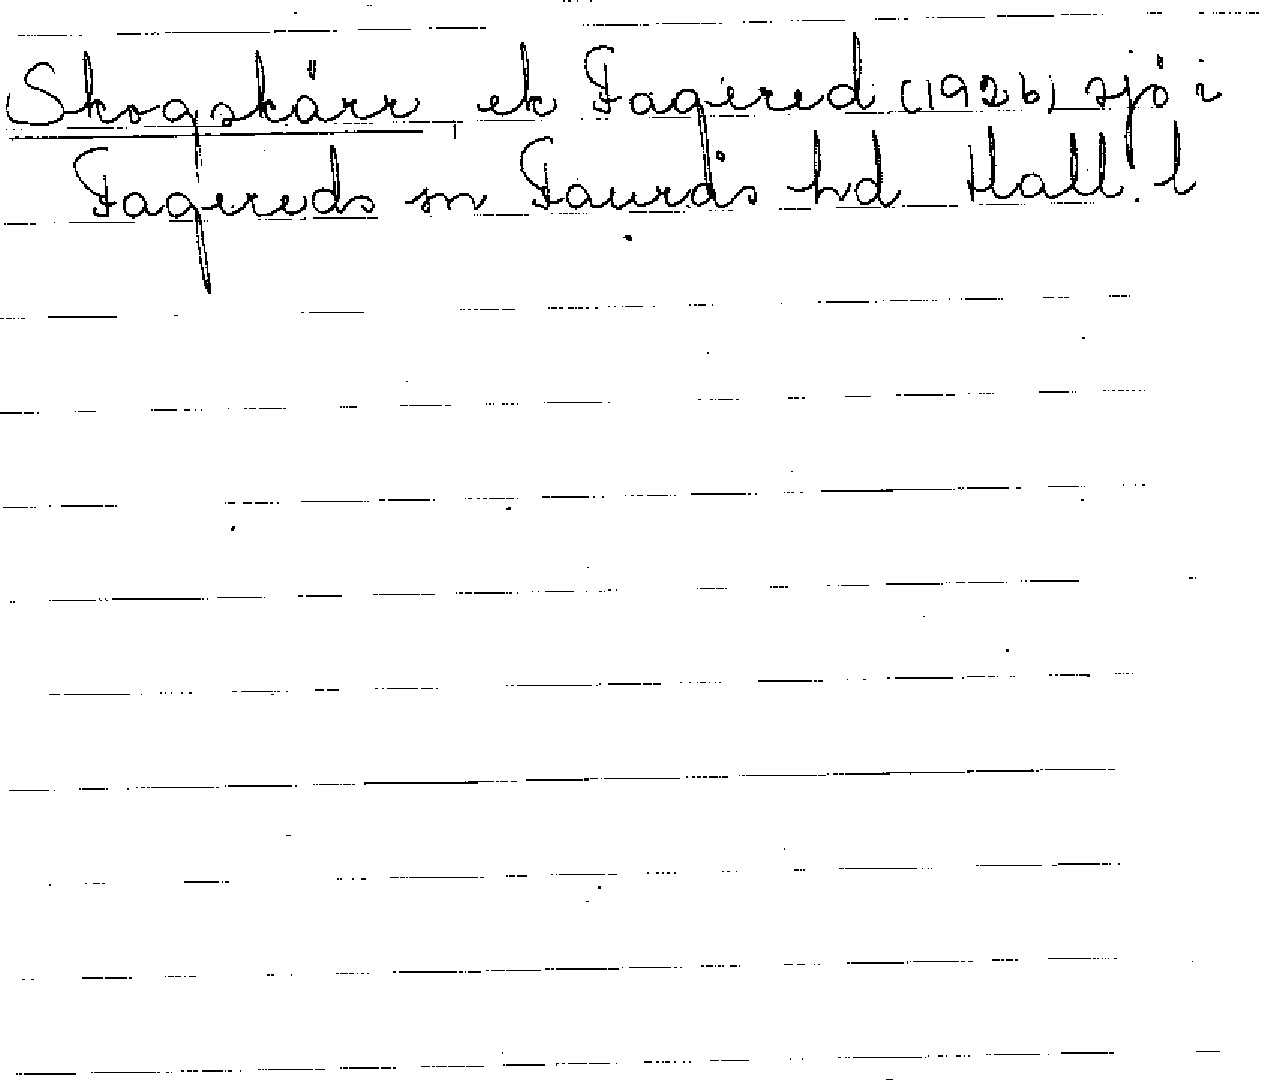 Skogskärr, ek Fagered (1926) sjö i
Fagereds sn Faurås hd Hall. l